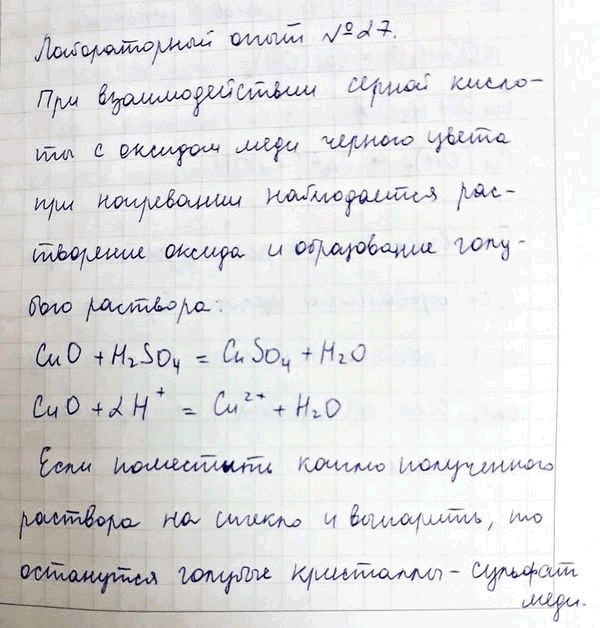 Лабораторный опыт №27.
При взаимодействии серной кисло-
ты с оксидом меди черного цвета
при нагревании наблюдается рас-
творение оксида и образование голу-
бого раствора:
CuO + H₂SO₄ = CuSO₄ + H₂O
CuO + 2H⁺ = Cu²⁺ + H₂O
Если поместить каплю полученного
раствора на стекло и выпарить, то
останутся голубые кристаллы - сульфат
меди.